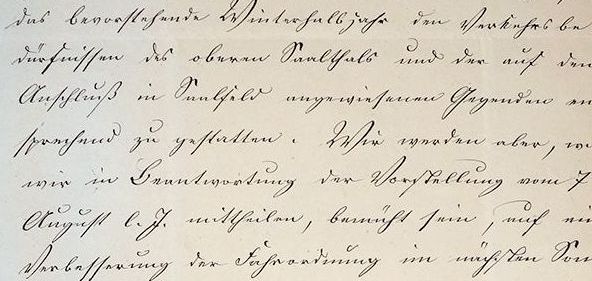 das bevorstehende Winterhalbjahr den Verkehrsbe
dürfnissen des oberen Saalthals und der auf den
Anschluß in Saalfeld angewiesenen Gegenden en
sprechend zu gestatten. Wir werden aber, w
wir in Beantwortung der Vorstellung vom 7
August l. J. mittheilen, bemüht sein, auf ei
Verbesserung der Fahrordnung im nächsten Som